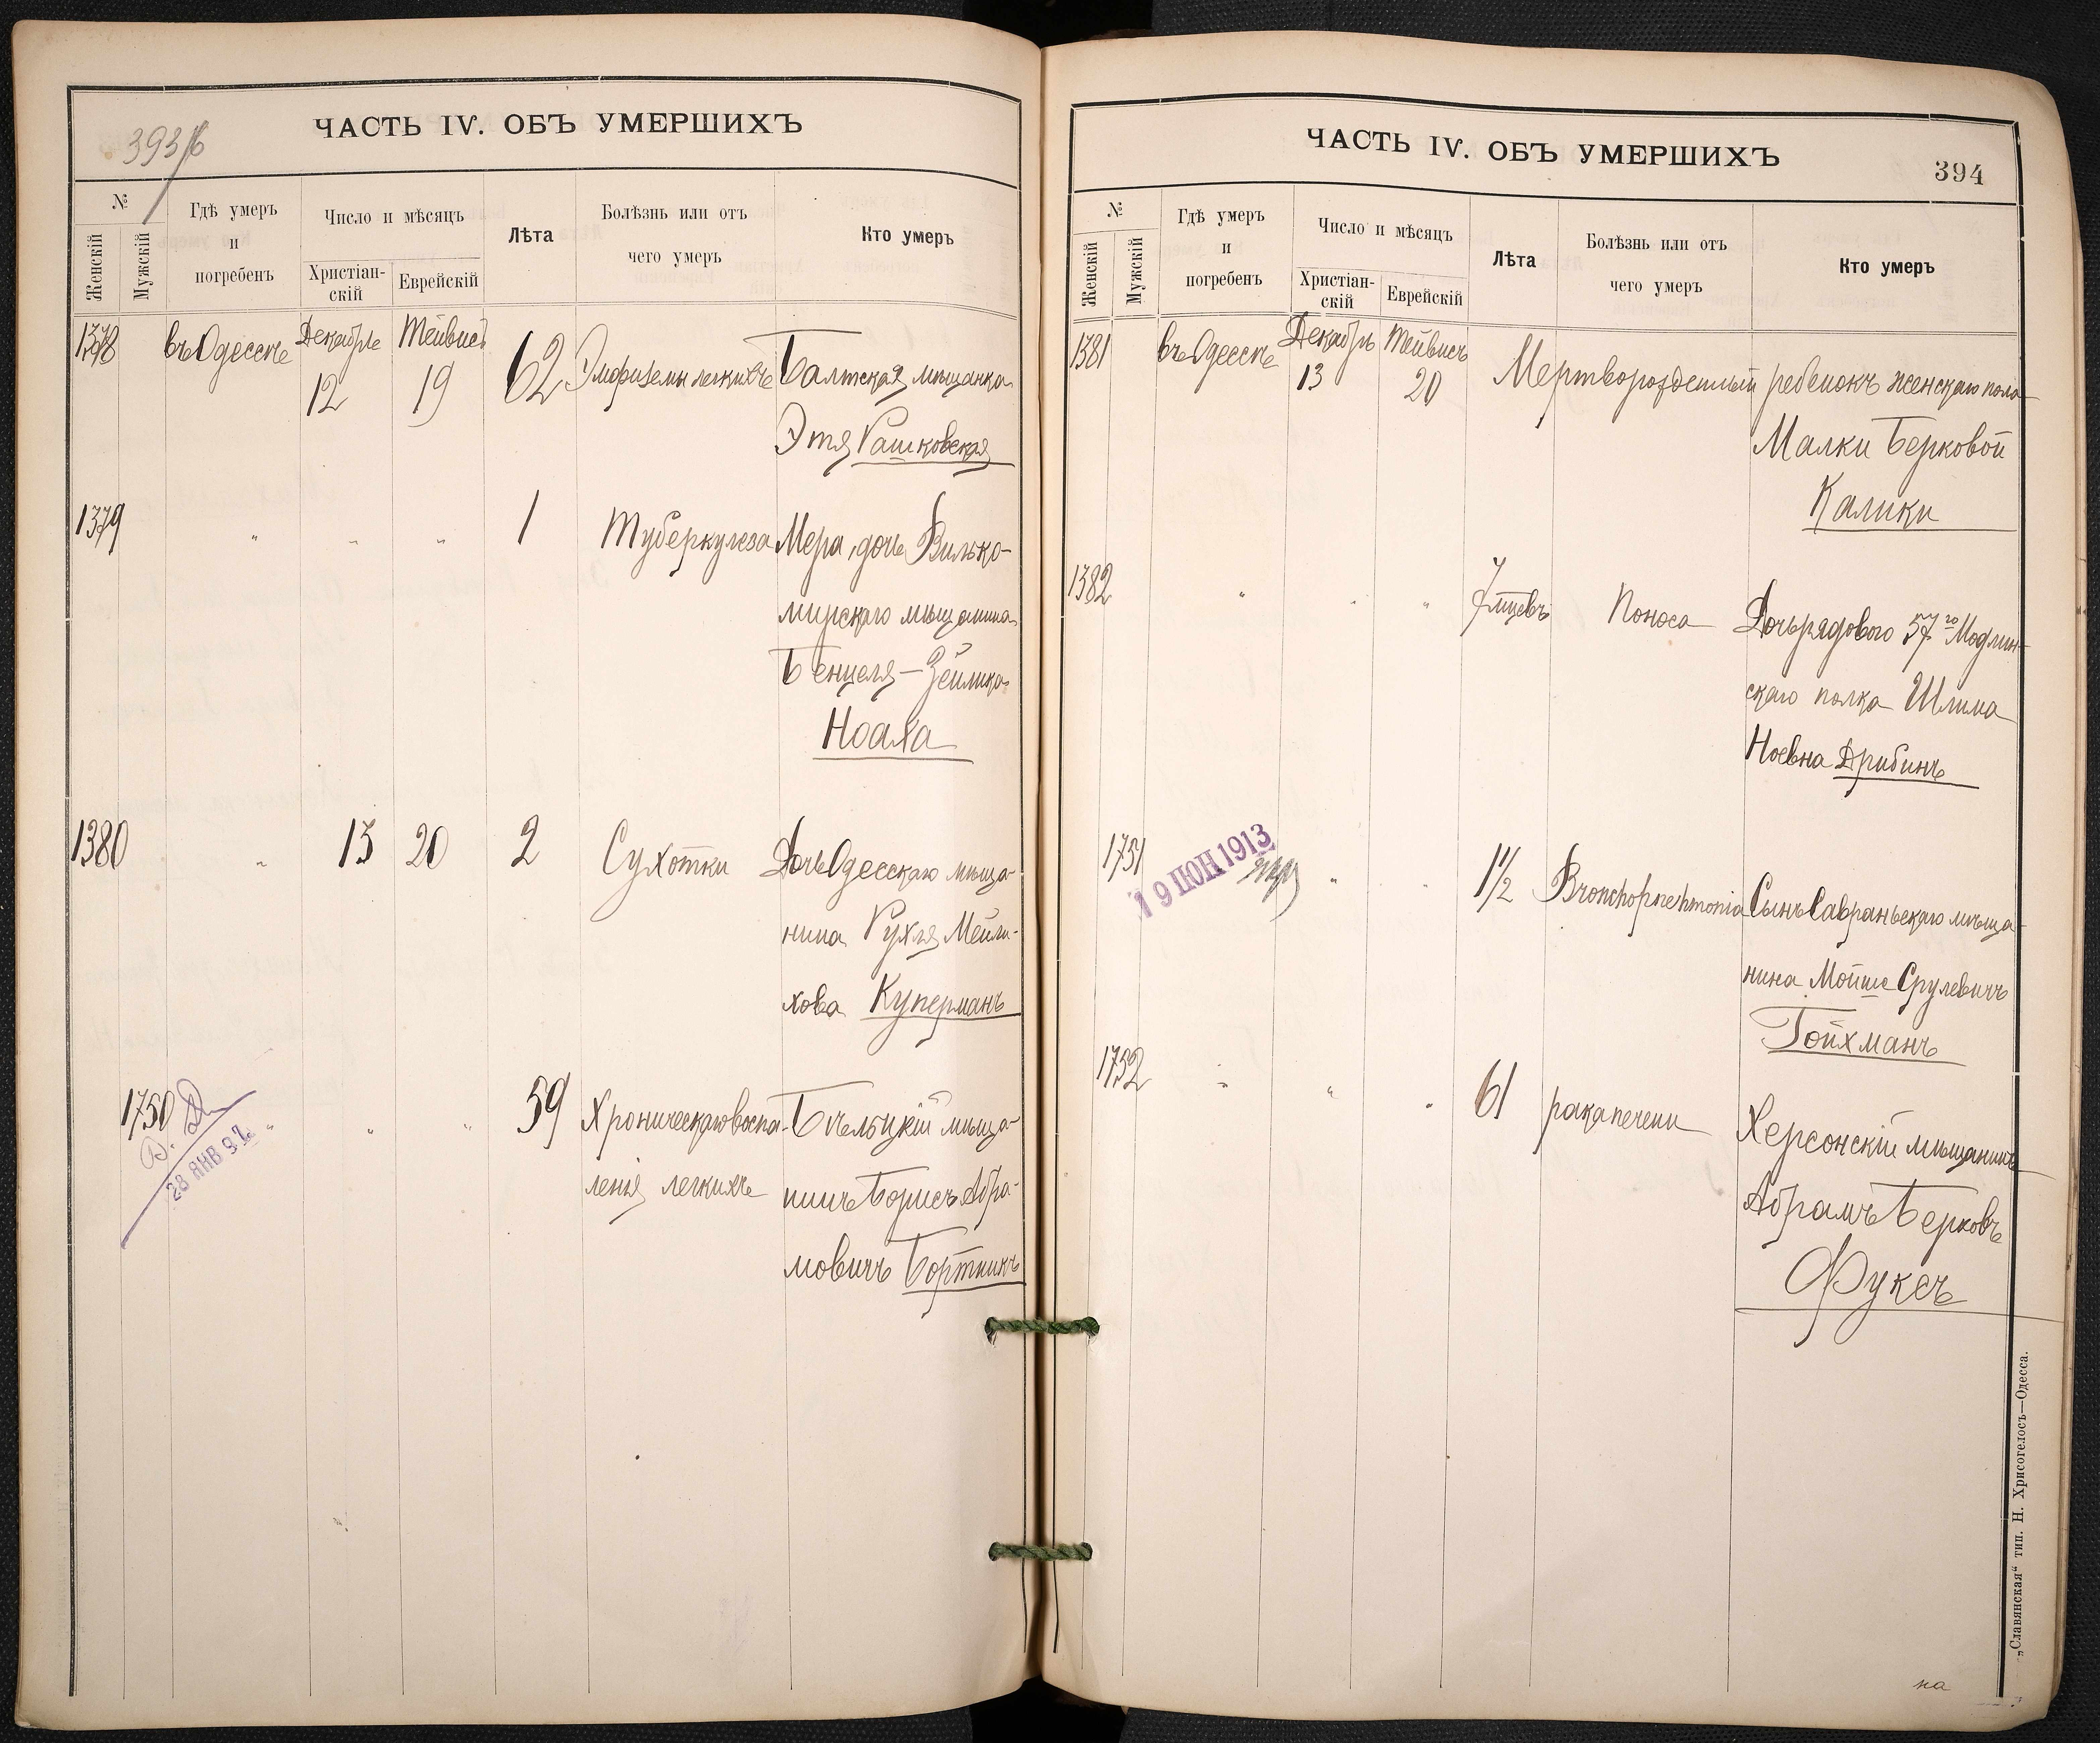 393/б
ЧАСТЬ IV. ОБЪ УМЕРШИХЪ
№
Женскій
Мужскій
Гдѣ умеръ
и
погребенъ
Число и мѣсяцъ
Христіан-
скій
Еврейскій
Лѣта
Болѣзнь или отъ
чего умеръ
Кто умеръ
1378 въ Одессѣ Декабрь 12 Тейвисъ 19 62 Эмфиземы легкихъ Балтская мѣщанка
Этя Рашковская
1379 " " " 1 Туберкулеза Мера, дочь Вилько-
мирскаго мѣщанина
Бенцеля-Зейлика
Ноаха
1380 " 13 20 2 Сухотки Дочь Одесскаго мѣща-
нина Рухля Мейли-
хова Куперманъ
1750 " " " 59 Хроническаго воспа- Бѣльцкій мѣща-
ленія легкихъ нинъ Борисъ Абра-
мовичъ Бортникъ
28 ЯНВ 92
ЧАСТЬ IV. ОБЪ УМЕРШИХЪ
394
№
Женскій
Мужскій
Гдѣ умеръ
и
погребенъ
Число и мѣсяцъ
Христіан-
скій
Еврейскій
Лѣта
Болѣзнь или отъ
чего умеръ
Кто умеръ
1381 въ Одессѣ Декабрь 13 Тейвисъ 20 Мертворожденный ребенокъ женскаго пола
Малки Берковой
Калики
1382 " " " 7 мцевъ Поноса Дочь рядового 57го Модлин-
скаго полка Шлима
Ноевна Дрибинъ
1751 " " 1½ Bronchopnehmonia Сынъ Савраньскаго мѣща-
нина Мойше Срулевичъ
Тойхманъ
19 ІЮН 1913
1752 " " " 61 рака печени Херсонскій мѣщанинъ
Абрамъ Берковъ
Фуксъ
на
„Славянская“ тип. Н. Хрисогелосъ—Одесса.